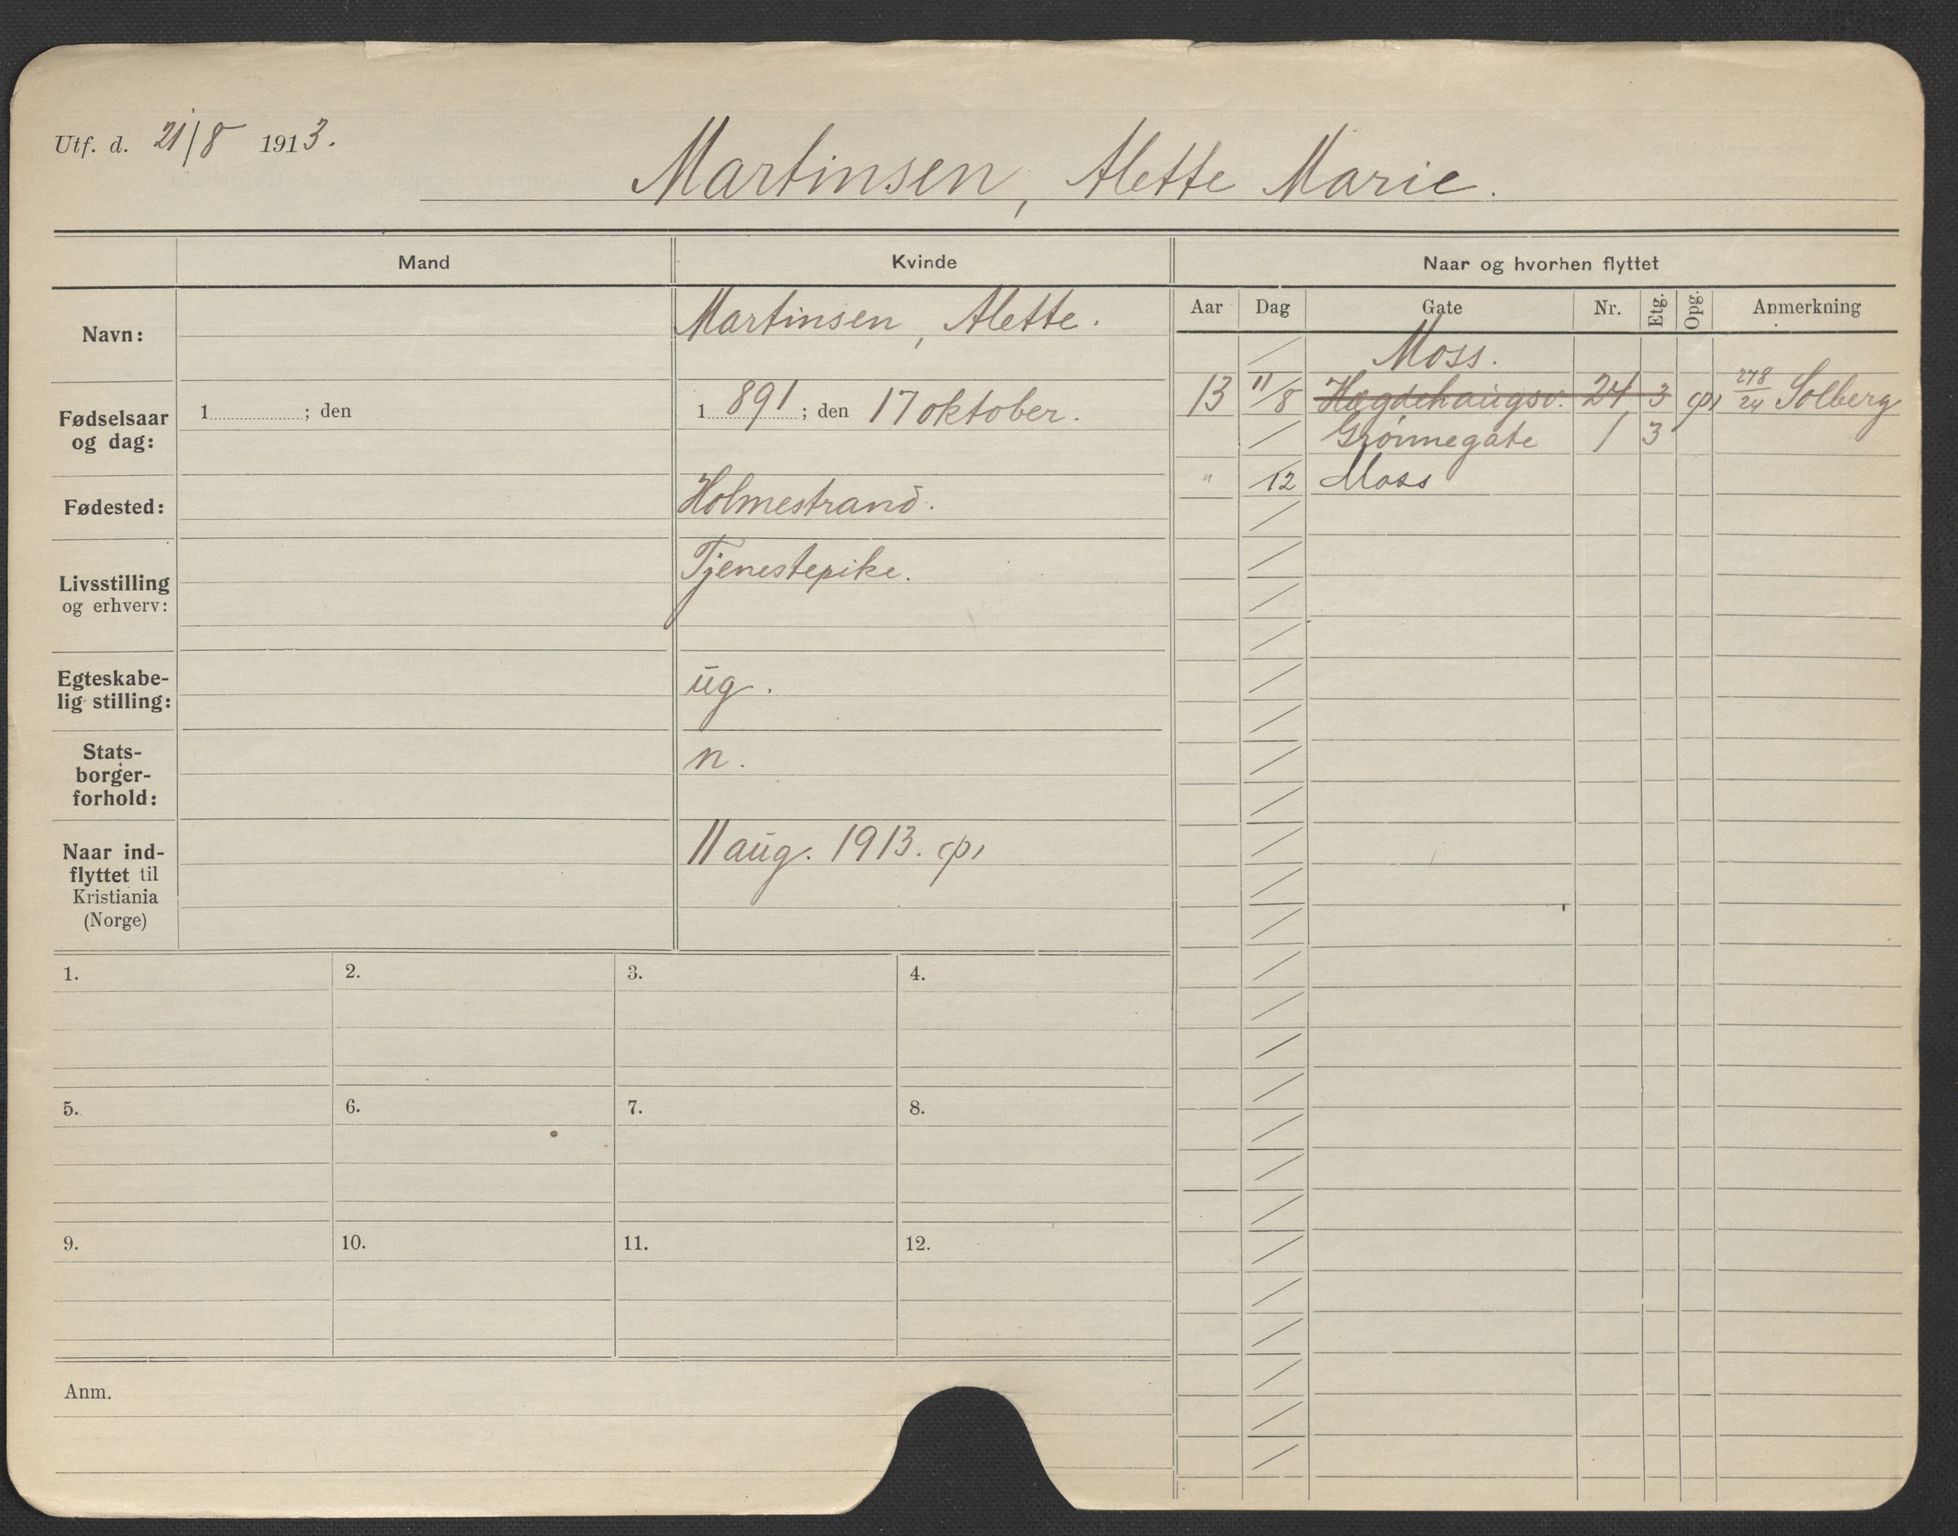 Utf. d. 21/8 1913.
Martinsen, Alette Marie.
Mand
Kvinde
Naar og hvorhen flyttet
Aar Dag Gate Nr. Etg. Opg. Anmerkning
Navn:
Martinsen, Alette.
Fødselsaar
og dag:
1 ; den
1 891 ; den 17 oktober.
Fødested:
Holmestrand.
Livsstilling
og erhverv:
Tjenestepike.
Egteskabe-
lig stilling:
ug.
Stats-
borger-
forhold:
n.
Naar ind-
flyttet til
Kristiania
(Norge)
11 aug. 1913.
Moss.
13 11/8 Hægdehaugsv. 24 3 278/24 Solberg
Grønnegate 1 3
" /12 Moss
1. 2. 3. 4.
5. 6. 7. 8.
9. 10. 11. 12.
Anm.